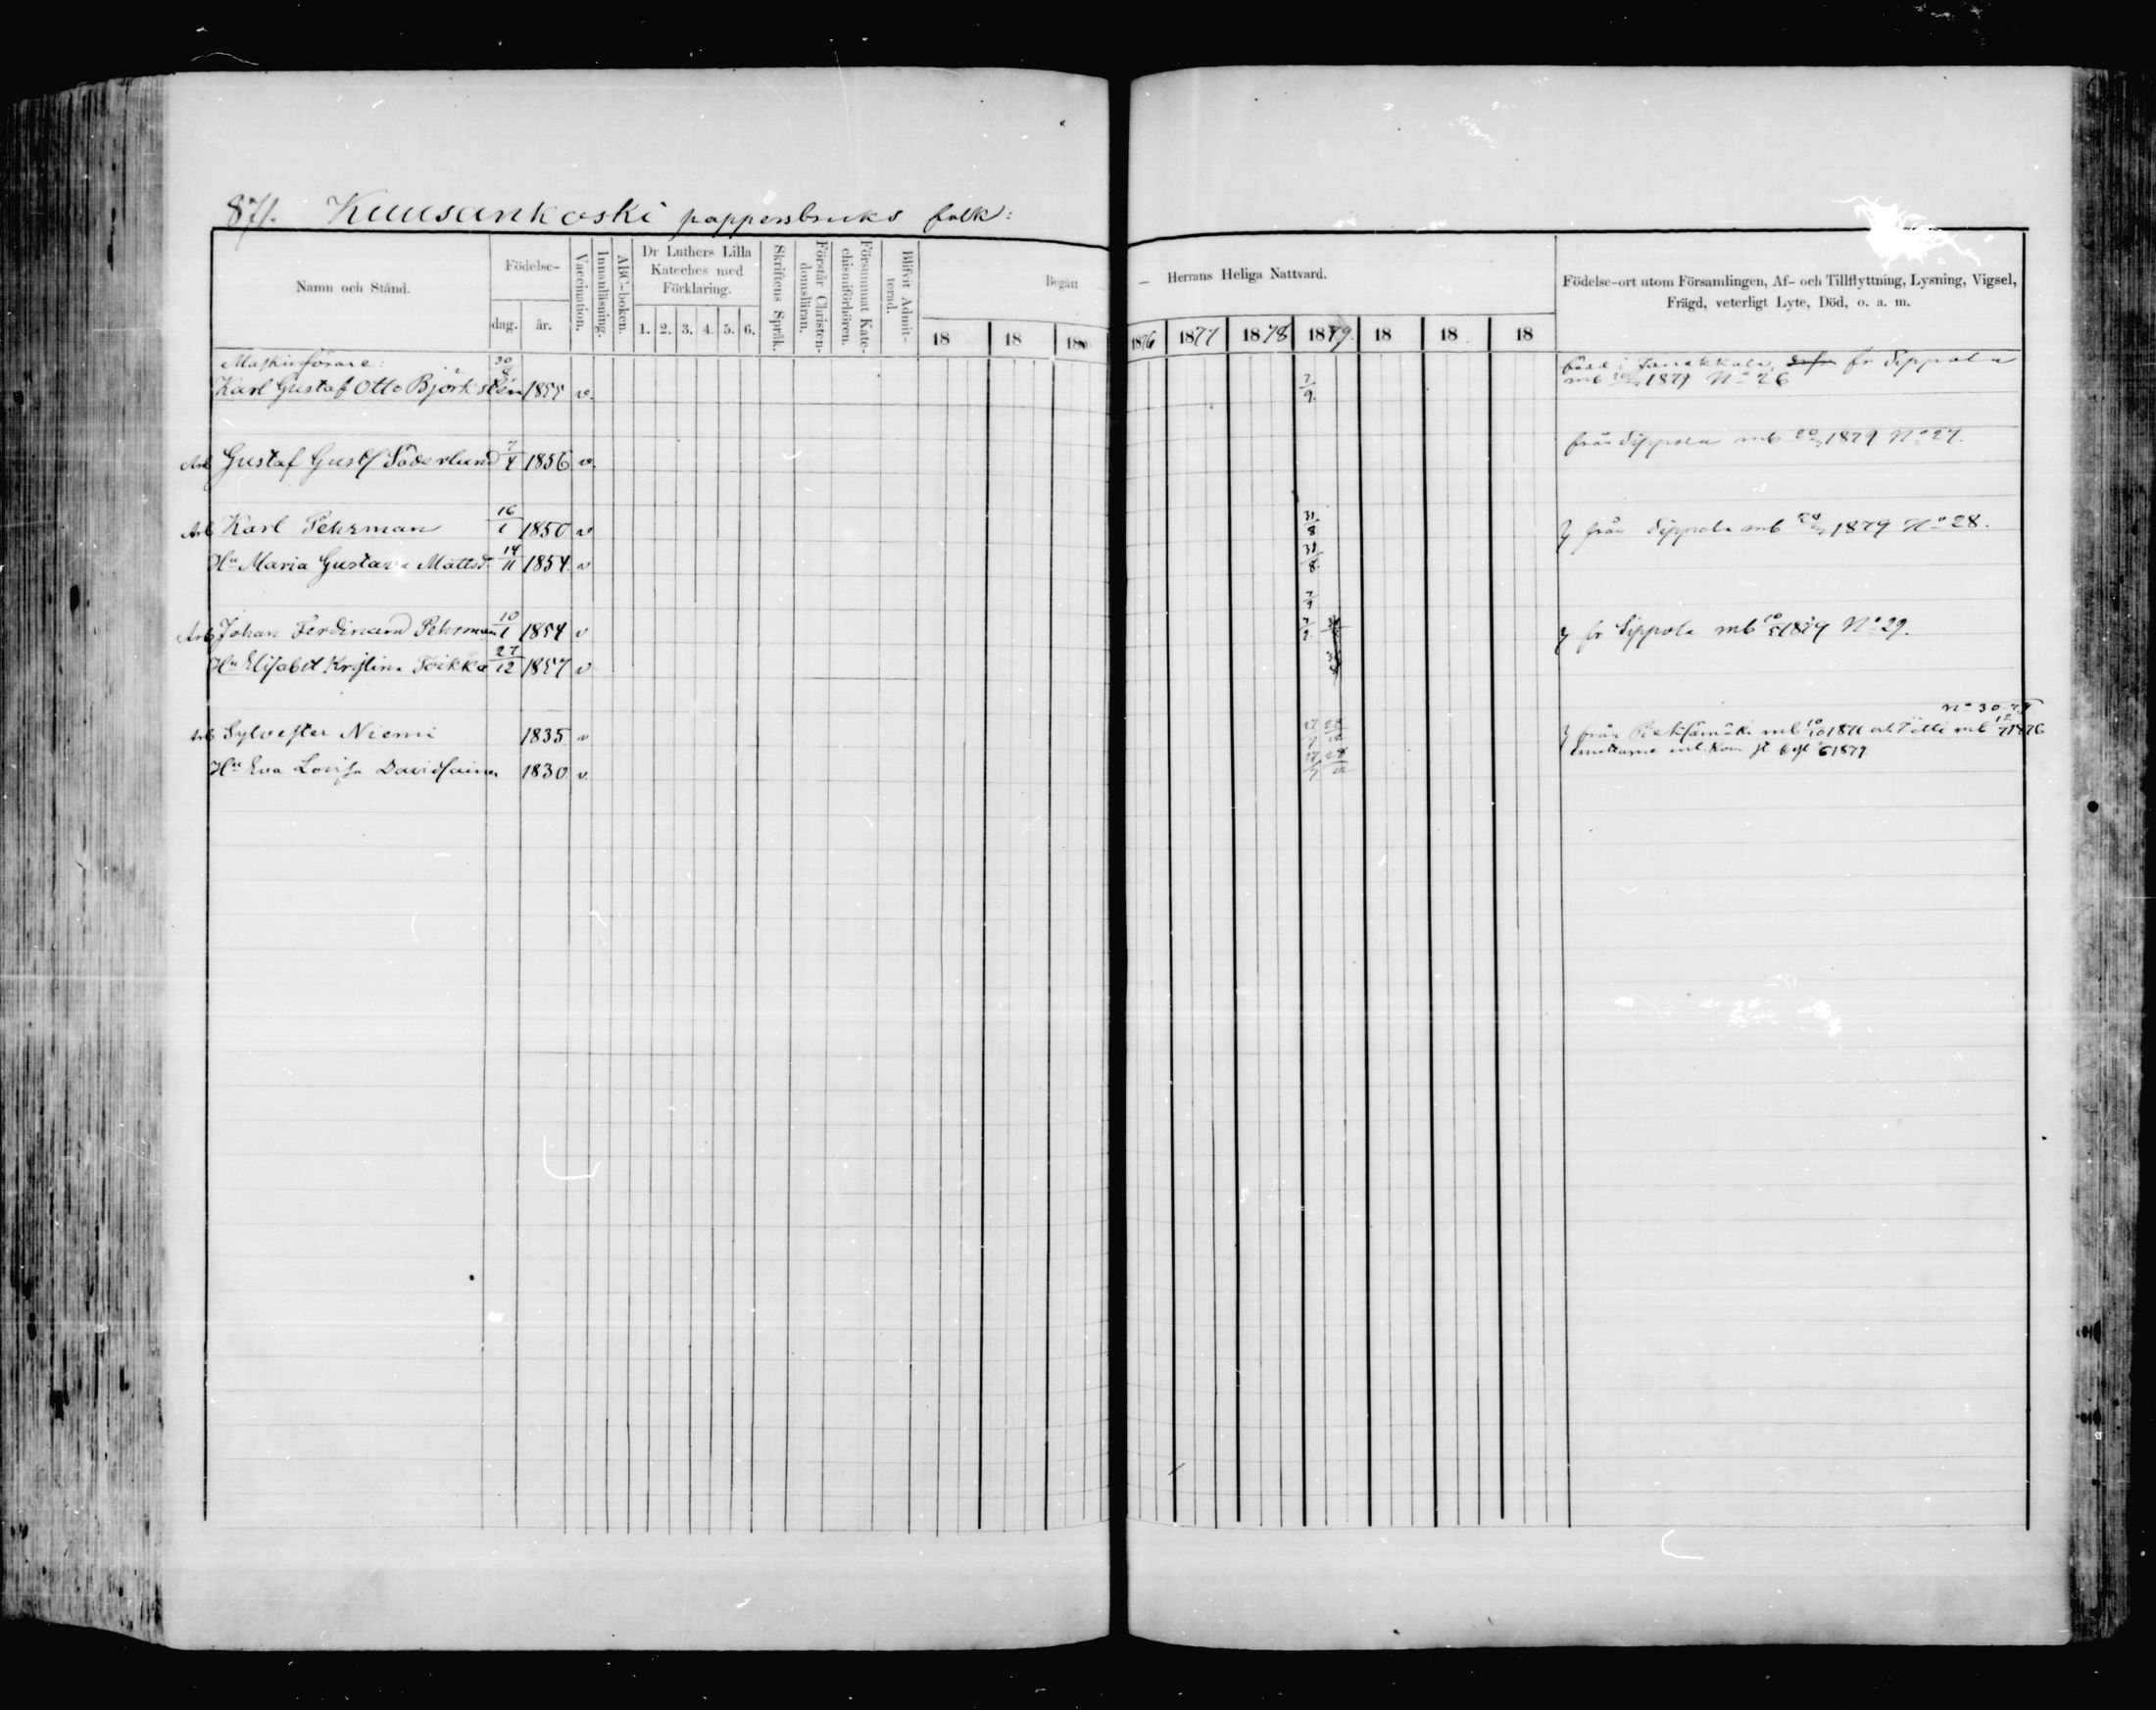 871. Kuusankoski pappersbruks folk:
Namn och Stånd. Födelse- dag. år. Vaccination. Innanläsning. ABC-boken. Dr Luthers Lilla Kateches med Förklaring. 1. 2. 3. 4. 5. 6. Skriftens Språk. Förstår Christendomsläran. Försummat Katechismiförhören. Blifvit Admitterad. Begått 18 18 18
— Herrans Heliga Nattvard. 1876 1877 1878 1879 18 18 18
Födelse-ort utom Församlingen, Af- och Tillflyttning, Lysning, Vigsel,
Frägd, veterligt Lyte, Död, o. a. m.
Maskinförare: 30/8 född i Janakkala, fr Sippola
Karl Gustaf Otto Björkstén 1855 v. 7/9. mb 1879 No 26
från Sippola mb 1879 No 27.
Arb Gustaf Gust/ Söderlund 7/4 1856 v.
Arb Karl Pehrman 16/1 1850 v 31/8 från Sippola mb 1879 No 28.
Hu Maria Gustava Mattsd. 14/11 1854 v 31/8.
7/9
Arb Johan Ferdinand Pehrman 10/1 1854 v 7/9. fr Sippola mb 1879 No 29.
Hu Elisabet Kristina Toikka 27/12 1857 v
No 30
Arb Sylvester Niemi 1835 v från Pieksämäki mb 10/10 mb 1876
Hu Eva Lovisa Davidsainen 1830 v. 1879